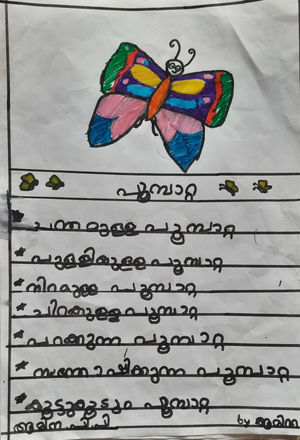 പൂമ്പാറ്റ
ചന്തമുള്ള പൂമ്പാറ്റ
പുള്ളിയുള്ള പൂമ്പാറ്റ
നിറമുള്ള പൂമ്പാറ്റ
ചിറകുള്ള പൂമ്പാറ്റ
പറക്കുന്ന പൂമ്പാറ്റ
സന്തോഷിക്കുന്ന പൂമ്പാറ്റ
കൂട്ടുകൂടും പൂമ്പാറ്റ
by